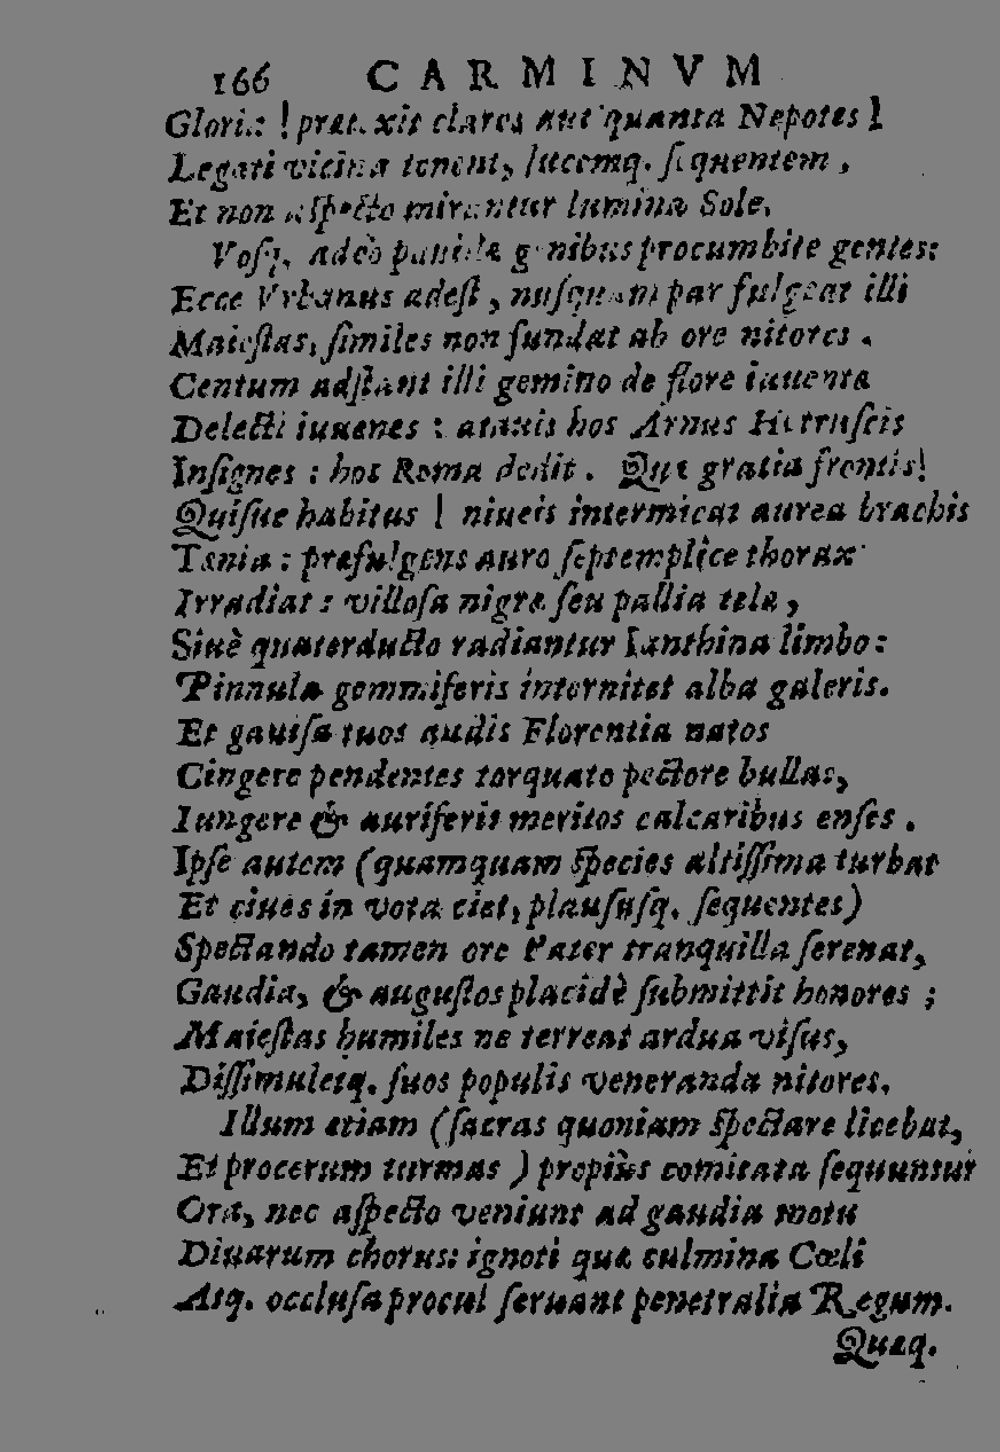 166 CARMINVM
Gloria! prætexit claros aut quanta Nepotes!
Legati vicina tenent, lucemq. sequentem,
Et non aspecto mirantur lumina Sole.
Vosq. adeò pauidæ genibus procumbite gentes:
Ecce Vrbanus adest, nusquam par fulgeat illi
Maiestas, similes non fundat ab ore nitores.
Centum adstant illi gemino de flore iuuenta
Delecti iuuenes: atauis hos Arnus Hetruscis
Insignes: hos Roma dedit. Quæ gratia frontis!
Quisue habitus! niueis intermicat aurea brachis
Tænia: præfulgens auro septemplice thorax
Irradiat: villosa nigræ seu pallia telæ,
Siuè quaterducto radiantur Ianthina limbo:
Pinnula gemmiferis internitet alba galeris.
Et gauisa tuos audis Florentia natos
Cingere pendentes torquato pectore bullas,
Iungere & auriferis meritos calcaribus enses.
Ipse autem (quamquam species altissima turbat
Et ciues in vota ciet, plaususq. sequentes)
Spectando tamen ore Pater tranquilla serenat,
Gaudia, & augustos placidè submittit honores;
Maiestas humiles ne terreat ardua visus,
Dissimuletq. suos populis veneranda nitores.
Illum etiam (sacras quoniam spectare licebat,
Et procerum turmas) propiùs comitata sequuntur
Ora, nec aspecto veniunt ad gaudia motu
Diuarum chorus: ignoti quæ culmina Cœli
Atq. occlusa procul seruant penetralia Regum.
Quæq.